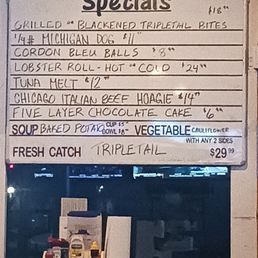 Specials
$18"
GRILLED or BLACKENED TRIPLETAIL BITES
1/4# MICHIGAN DOG $11"
CORDON BLEU BALLS $8"
LOBSTER ROLL - HOT or COLD $24"
TUNA MELT $12"
CHICAGO ITALIAN BEEF HOAGIE $14"
FIVE LAYER CHOCOLATE CAKE $6"
SOUP BAKED POTATO CUP $5" BOWL $8" VEGETABLE CAULIFLOWER
WITH ANY 2 SIDES
FRESH CATCH TRIPLETAIL $29.99